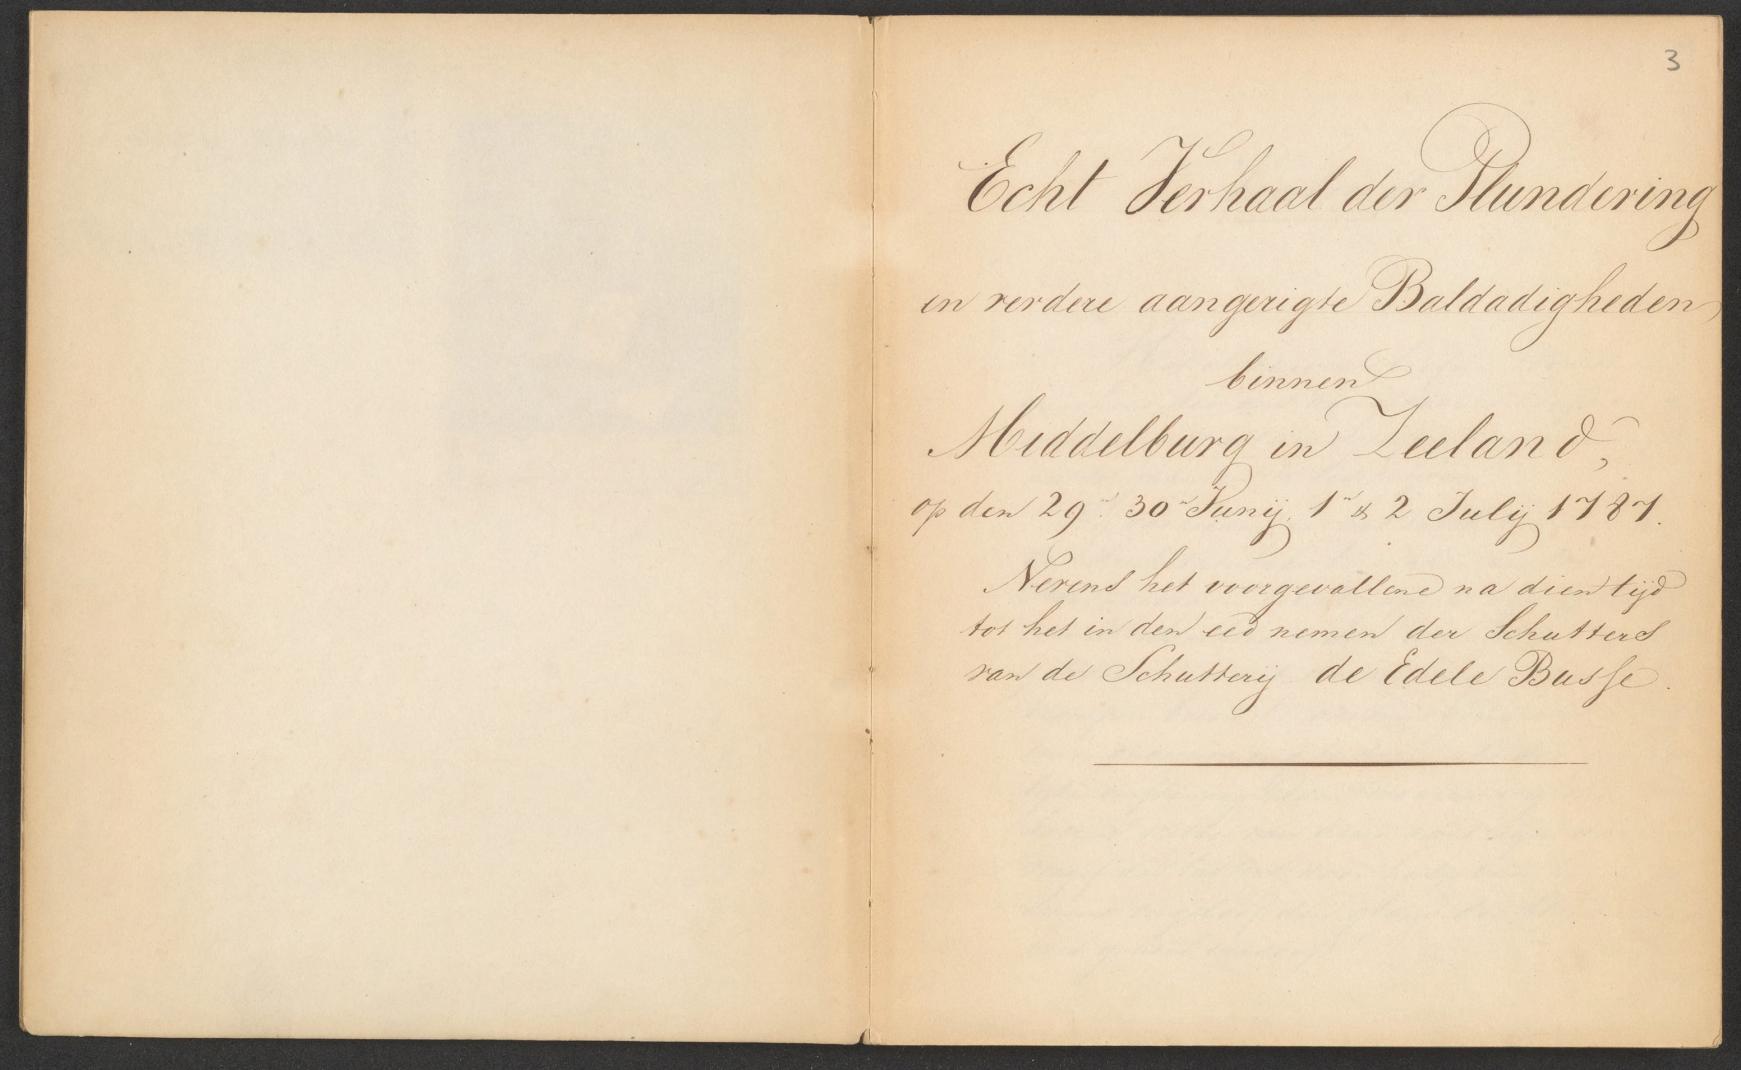 3
Echt Verhaal der Plundering
en verdere aangerigte Baldadigheden,
binnen
Middelburg in Zeeland,
op den 29n. 30n Junij, 1n & 2 Julij 1787.
Nevens het voorgevallene na dien tijd
tot het in den eed nemen der Schutters
van de Schutterij de Edele Busse.